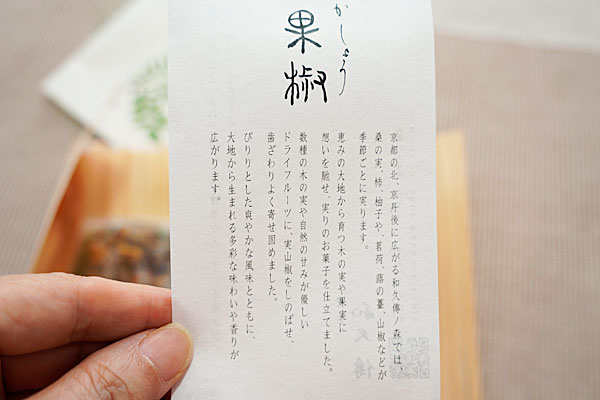 果椒
かしょう
京都の北、京丹後に広がる和久傳ノ森では、
桑の実、柿、柚子や、茗荷、蕗の薹、山椒などが
季節ごとに実ります。
恵みの大地から育つ木の実や果実に
想いを馳せ、実りのお菓子を仕立てました。
数種の木の実や自然の甘みが優しい
ドライフルーツに、実山椒をしのばせ、
歯ざわりよく寄せ固めました。
ぴりりとした爽やかな風味とともに、
大地から生まれる多彩な味わいや香りが
広がります。